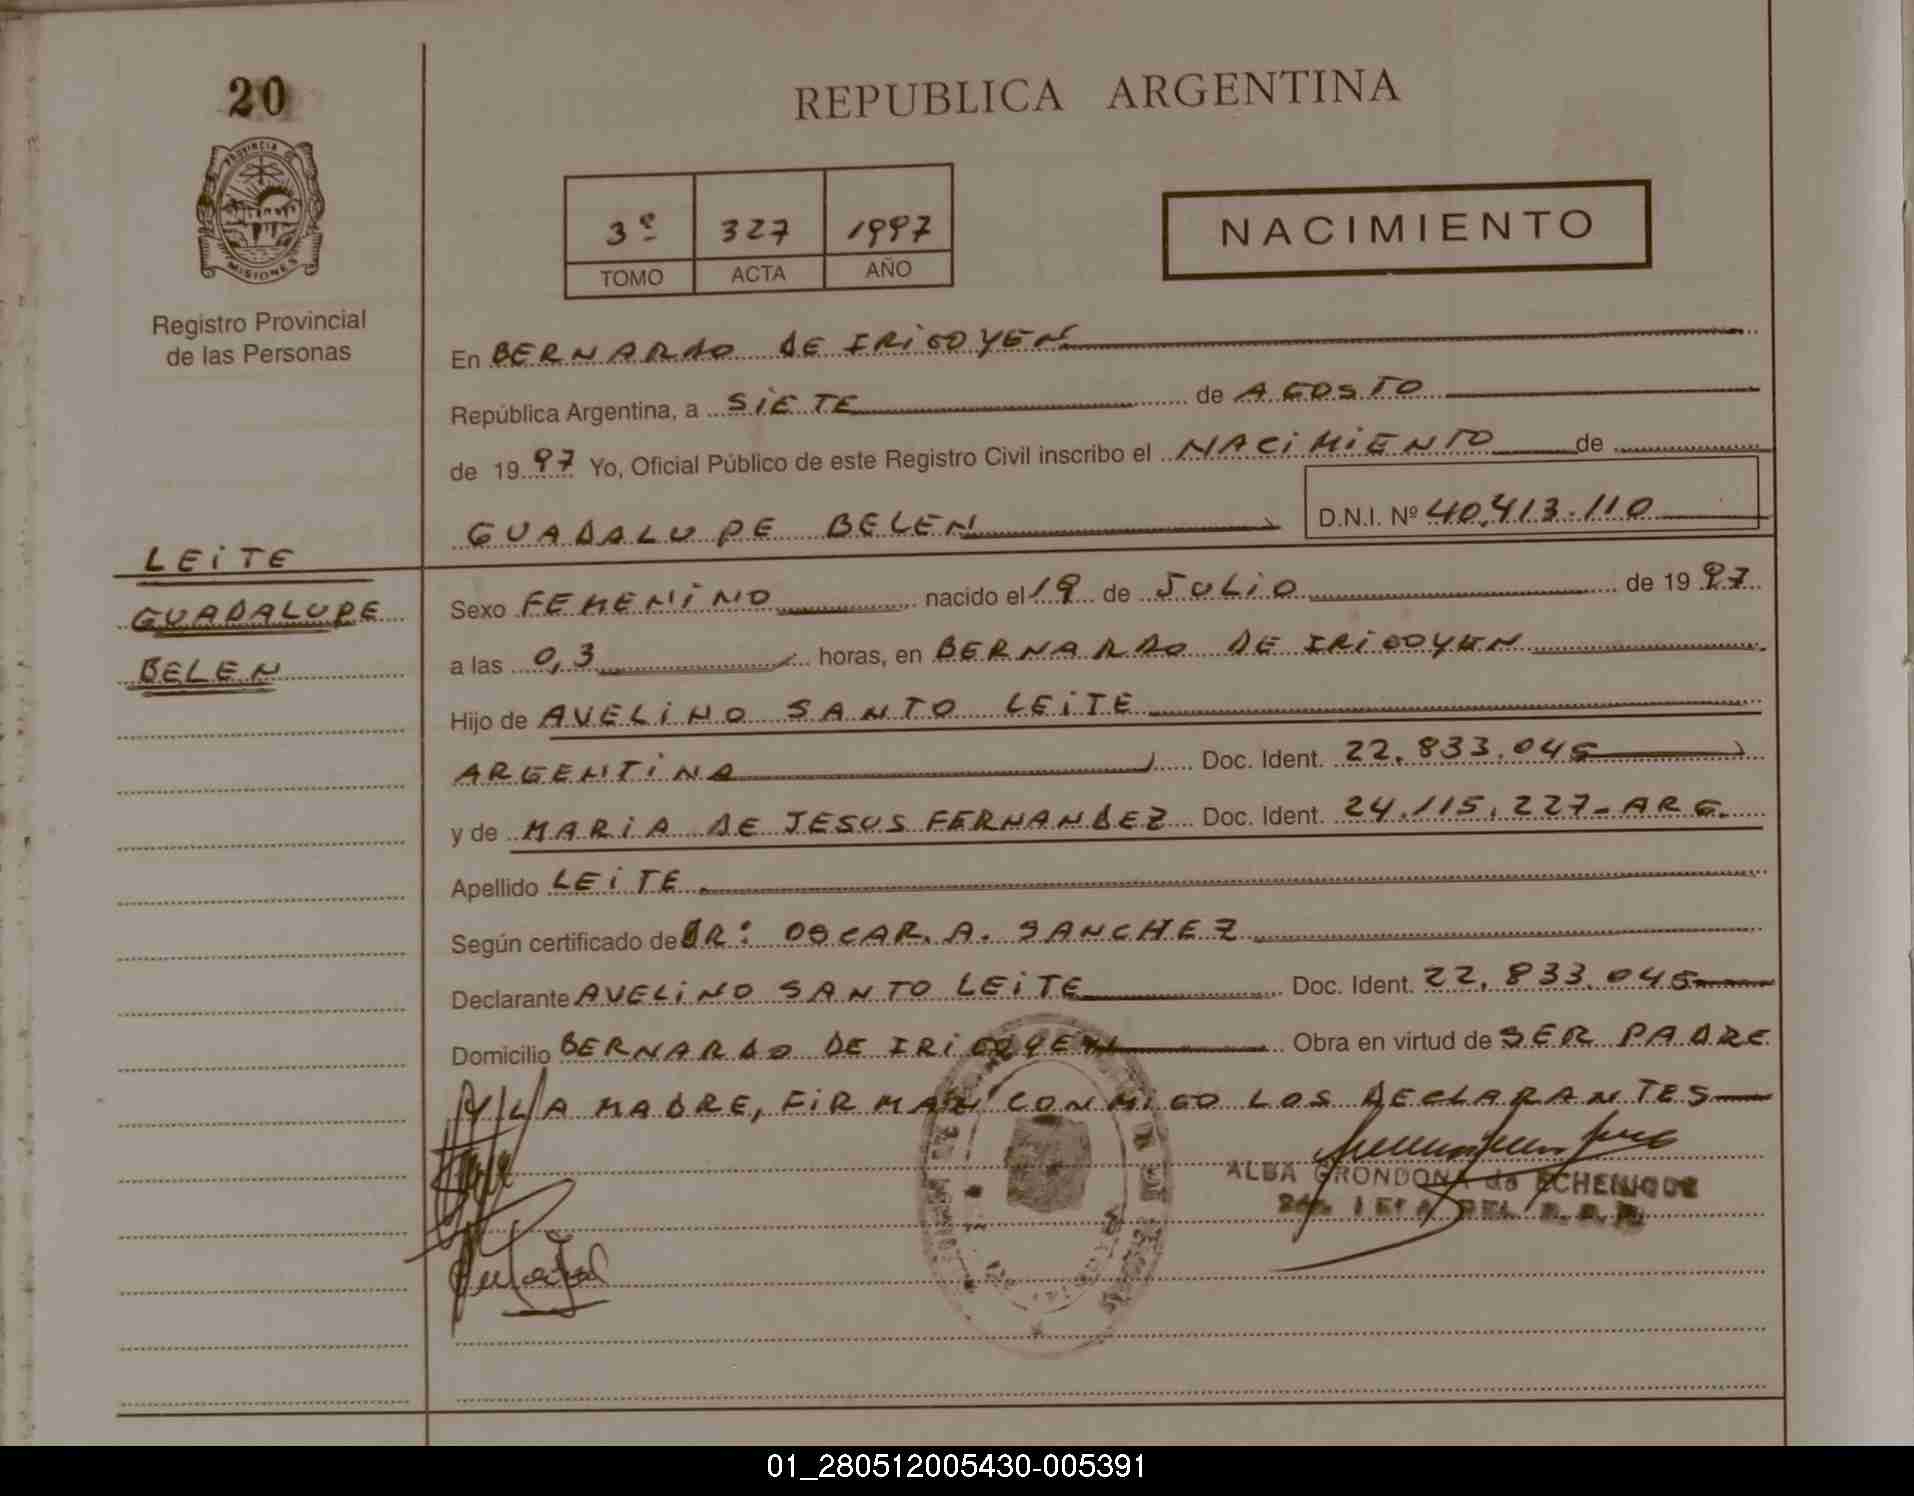 20
PROVINCIA DE
MISIONES
Registro Provincial
de las Personas
LEiTE
GUADALUPE
BELEN
REPUBLICA ARGENTINA
3º 327 1997
TOMO ACTA AÑO
NACIMIENTO
En BERNARDO DE IRiGOYEN
República Argentina, a SiETE de AGOSTO
de 1997 Yo, Oficial Público de este Registro Civil inscribo el NACiMiENTO de
GUADALUPE BELEN D.N.I. Nº 40.413.110
Sexo FEMENiNO nacido el 19 de JULiO de 1997
a las 0,3 horas, en BERNARDO DE IRiGOYEN
Hijo de AVELiNO SANTO LEiTE
ARGENTiNA Doc. Ident. 22.833.045
y de MARiA DE JESUS FERNANDEZ Doc. Ident. 24.115.227-ARG.
Apellido LEiTE
Según certificado de DR: OSCAR. A. SANCHEZ
Declarante AVELiNO SANTO LEiTE Doc. Ident. 22.833.045
Domicilio BERNARDO DE IRiGOYEN Obra en virtud de SER PADRE
Y LA MADRE, FiRMAN CONMiGO LOS DECLARANTES
ALBA GRONDONA de ECHENIQUE
01_280512005430-005391